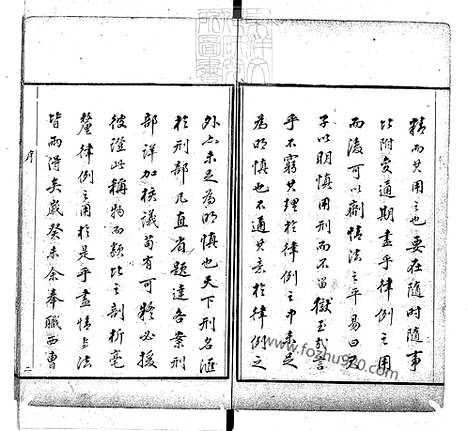 精而其用之也要在隨時隨事
比附變通期盡乎律例之用
而後可以劑情法之平易曰君
子以明慎用刑而不留獄至哉言
乎不窮其理於律例之中未足
為明慎也不通其意於律例之
外亦未足為明慎也天下刑名滙
於刑部凡直省題達各案刑
部詳加核議苟有可疑必援
彼證此稱物而類比之剖析毫
釐律例之用於是乎盡情與法
皆兩得矣歲癸未余奉職西曹
序
二
www.fozhu920.com